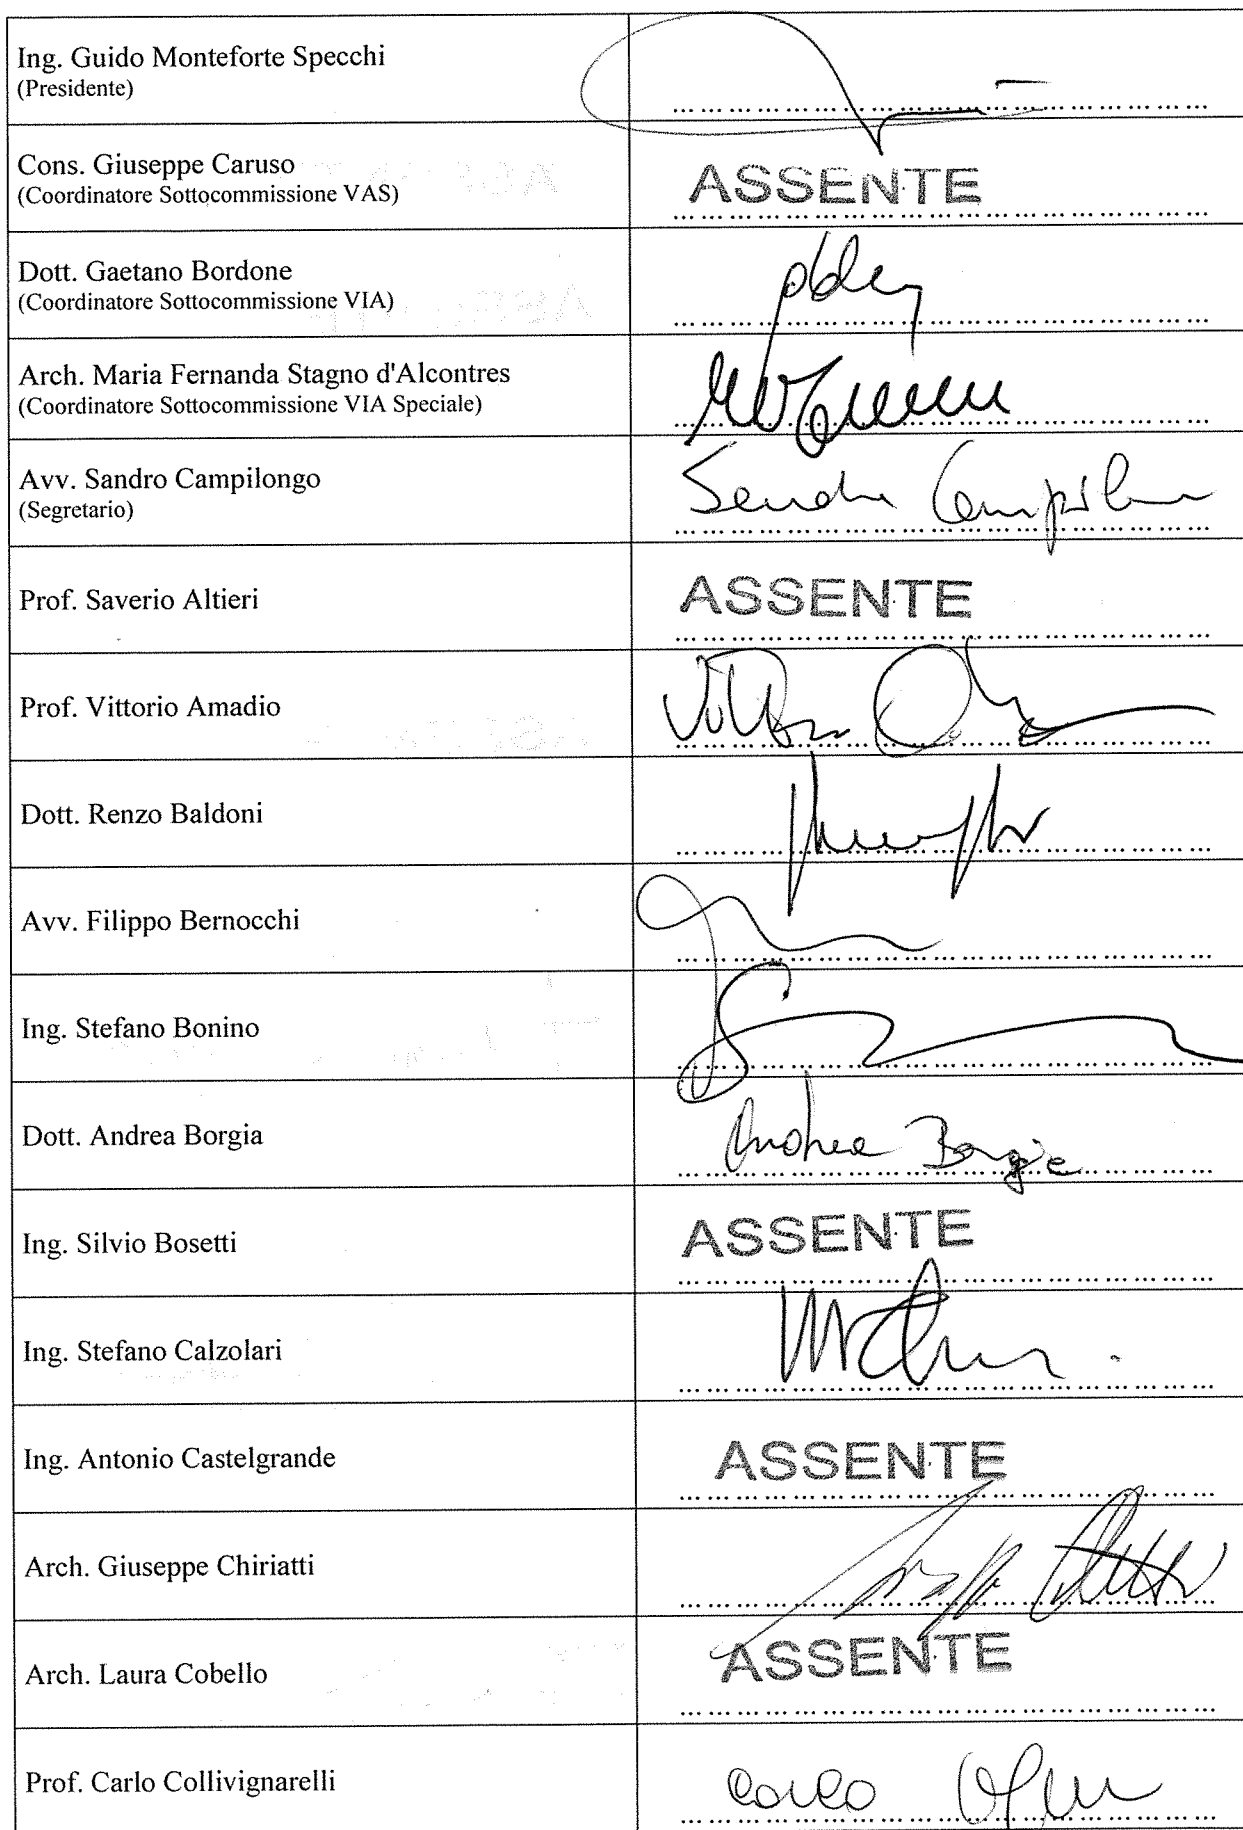 Ing. Guido Monteforte Specchi
(Presidente)
Cons. Giuseppe Caruso
(Coordinatore Sottocommissione VAS)
ASSENTE
Dott. Gaetano Bordone
(Coordinatore Sottocommissione VIA)
Arch. Maria Fernanda Stagno d'Alcontres
(Coordinatore Sottocommissione VIA Speciale)
Avv. Sandro Campilongo
(Segretario)
Prof. Saverio Altieri
ASSENTE
Prof. Vittorio Amadio
Dott. Renzo Baldoni
Avv. Filippo Bernocchi
Ing. Stefano Bonino
Dott. Andrea Borgia
Andrea Borgia
Ing. Silvio Bosetti
ASSENTE
Ing. Stefano Calzolari
Ing. Antonio Castelgrande
ASSENTE
Arch. Giuseppe Chiriatti
Arch. Laura Cobello
ASSENTE
Prof. Carlo Collivignarelli
Carlo